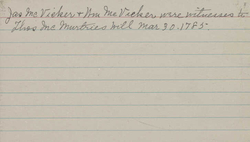 Jas Mc Vicker & Wm Mc Vicker were witnesses to
Thos Mc Murtries Will Mar 30. 1785.